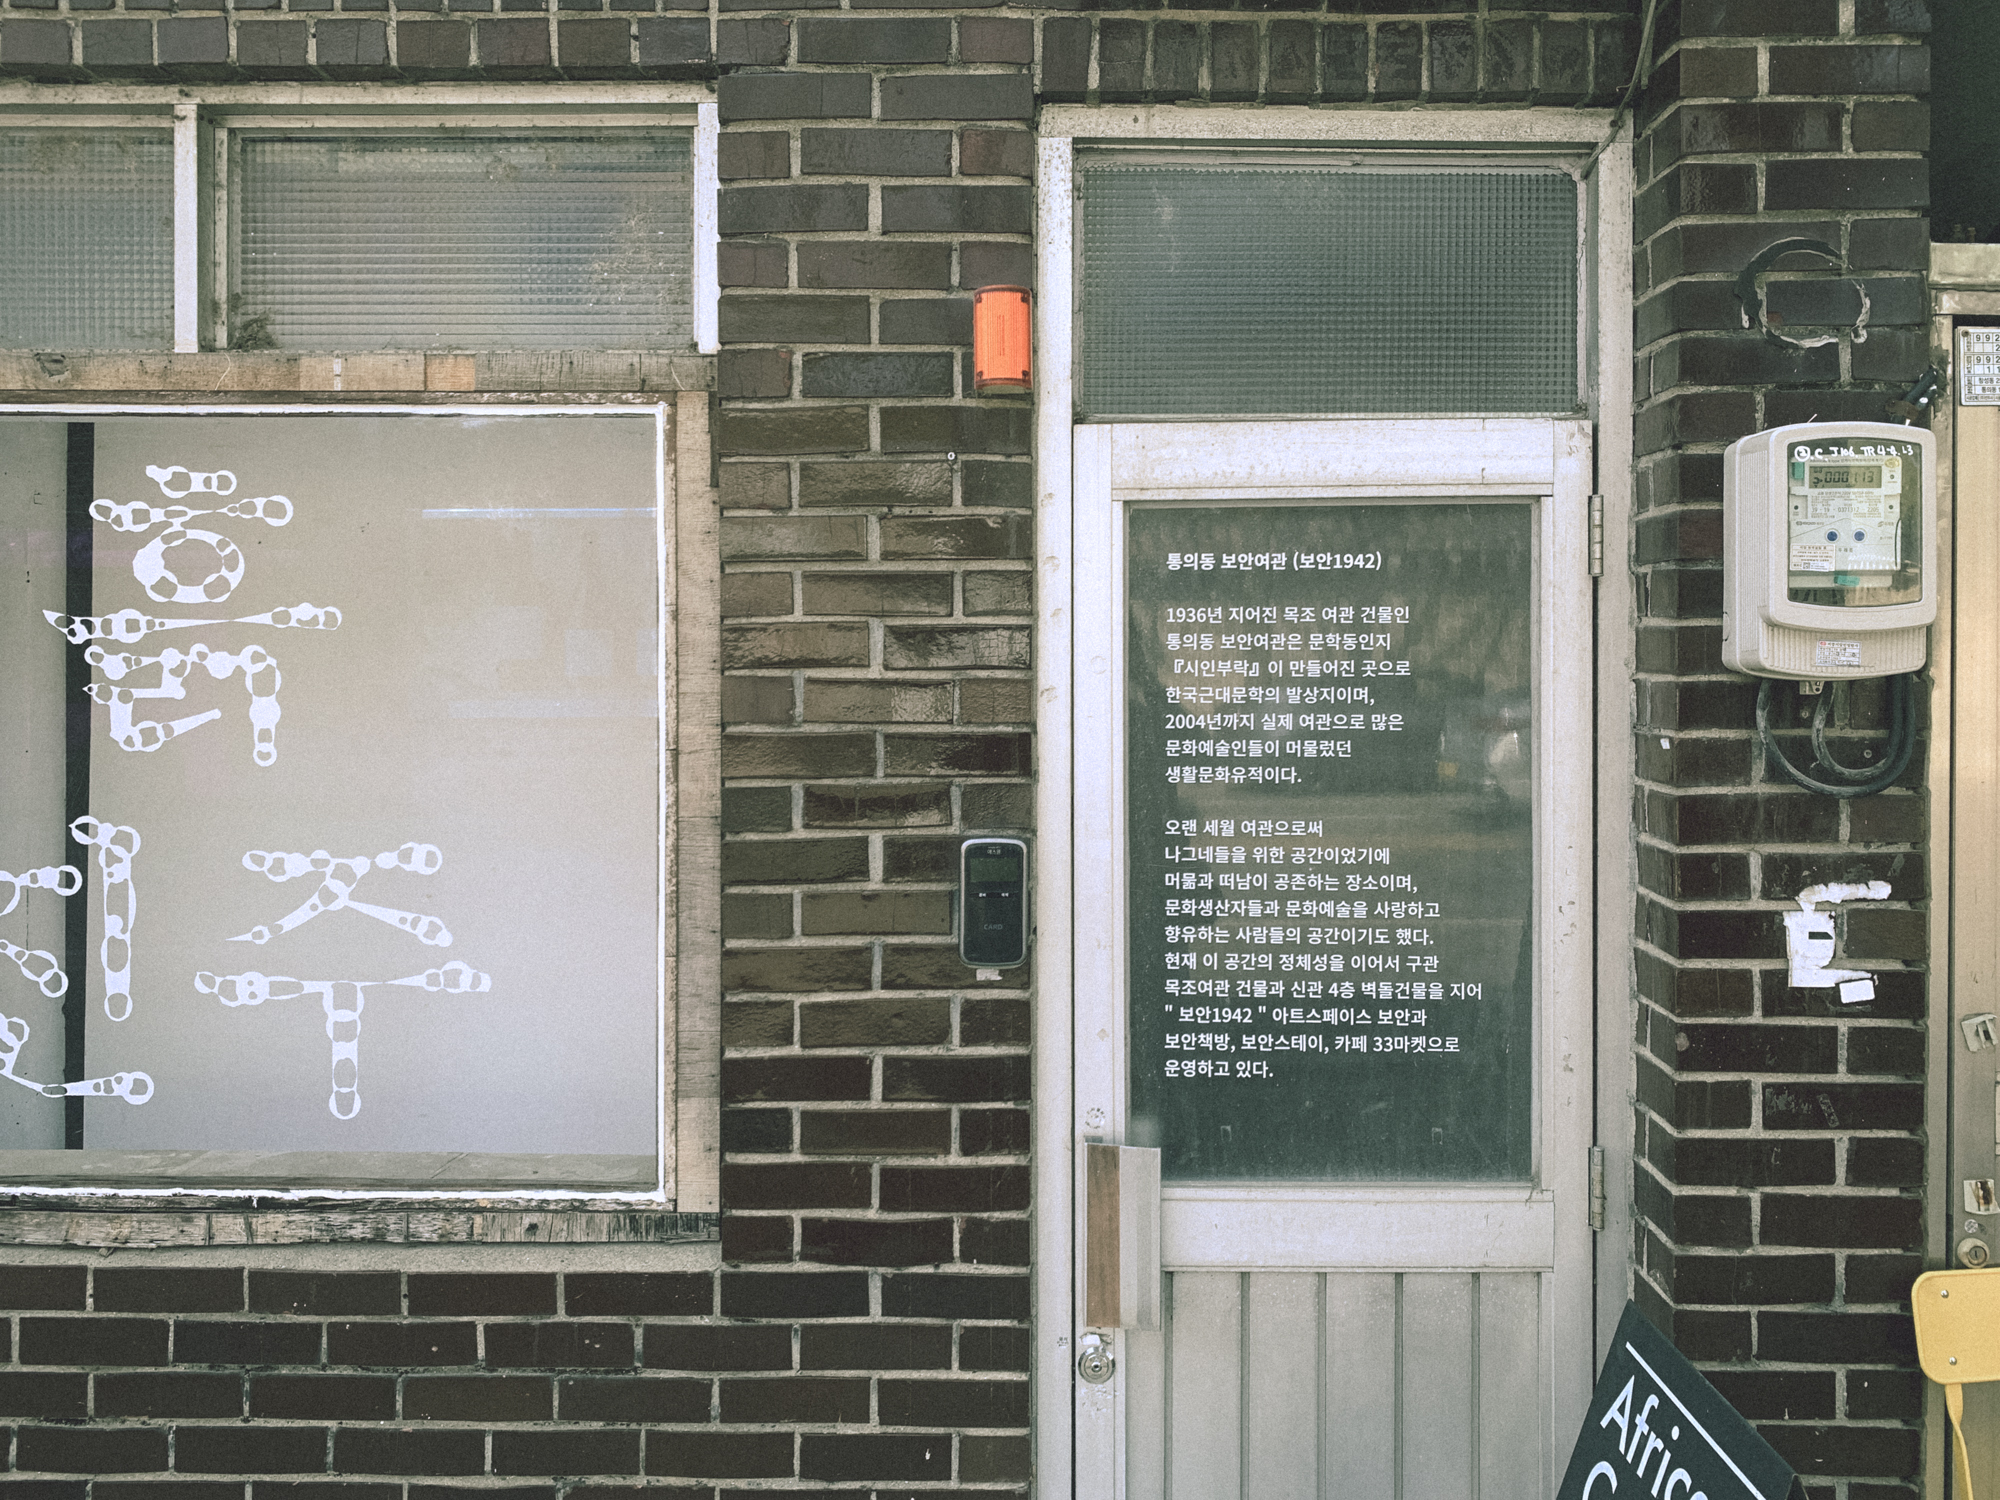 행
주
통의동 보안여관 (보안1942)
1936년 지어진 목조 여관 건물인
통의동 보안여관은 문학동인지
『시인부락』이 만들어진 곳으로
한국근대문학의 발상지이며,
2004년까지 실제 여관으로 많은
문화예술인들이 머물렀던
생활문화유적이다.
오랜 세월 여관으로써
나그네들을 위한 공간이었기에
머묾과 떠남이 공존하는 장소이며,
문화생산자들과 문화예술을 사랑하고
향유하는 사람들의 공간이기도 했다.
현재 이 공간의 정체성을 이어서 구관
목조여관 건물과 신관 4층 벽돌건물을 지어
" 보안1942 " 아트스페이스 보안과
보안책방, 보안스테이, 카페 33마켓으로
운영하고 있다.
CARD
Africa